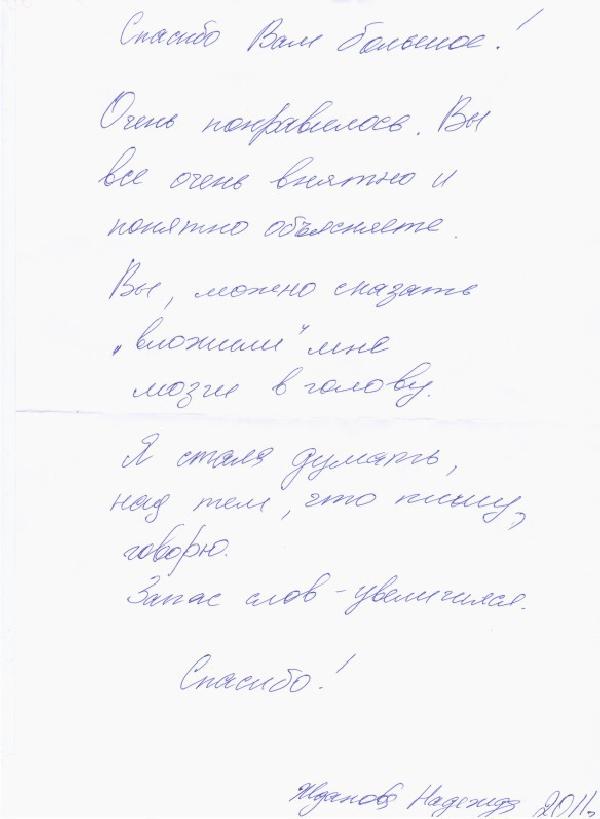 Спасибо Вам большое!
Очень понравилось. Вы
все очень внятно и
понятно объясняете.
Вы, можно сказать
„вложили" мне
мозги в голову.
Я стала думать,
над тем, что пишу,
говорю.
Запас слов - увеличился.
Спасибо!
Жданова Надежда 2011г